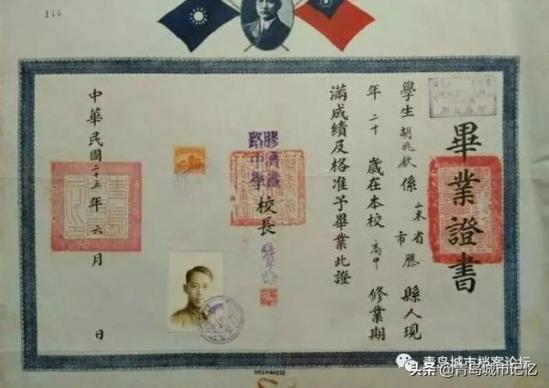 畢業證書
學生胡兆欽係山東省市滕縣人現
年二十歲在本校高中修業期
滿成績及格准予畢業此證
膠濟鐵路中學校長
中華民國二十五年六月 日
青岛城市档案论坛
头条@青岛城市记忆